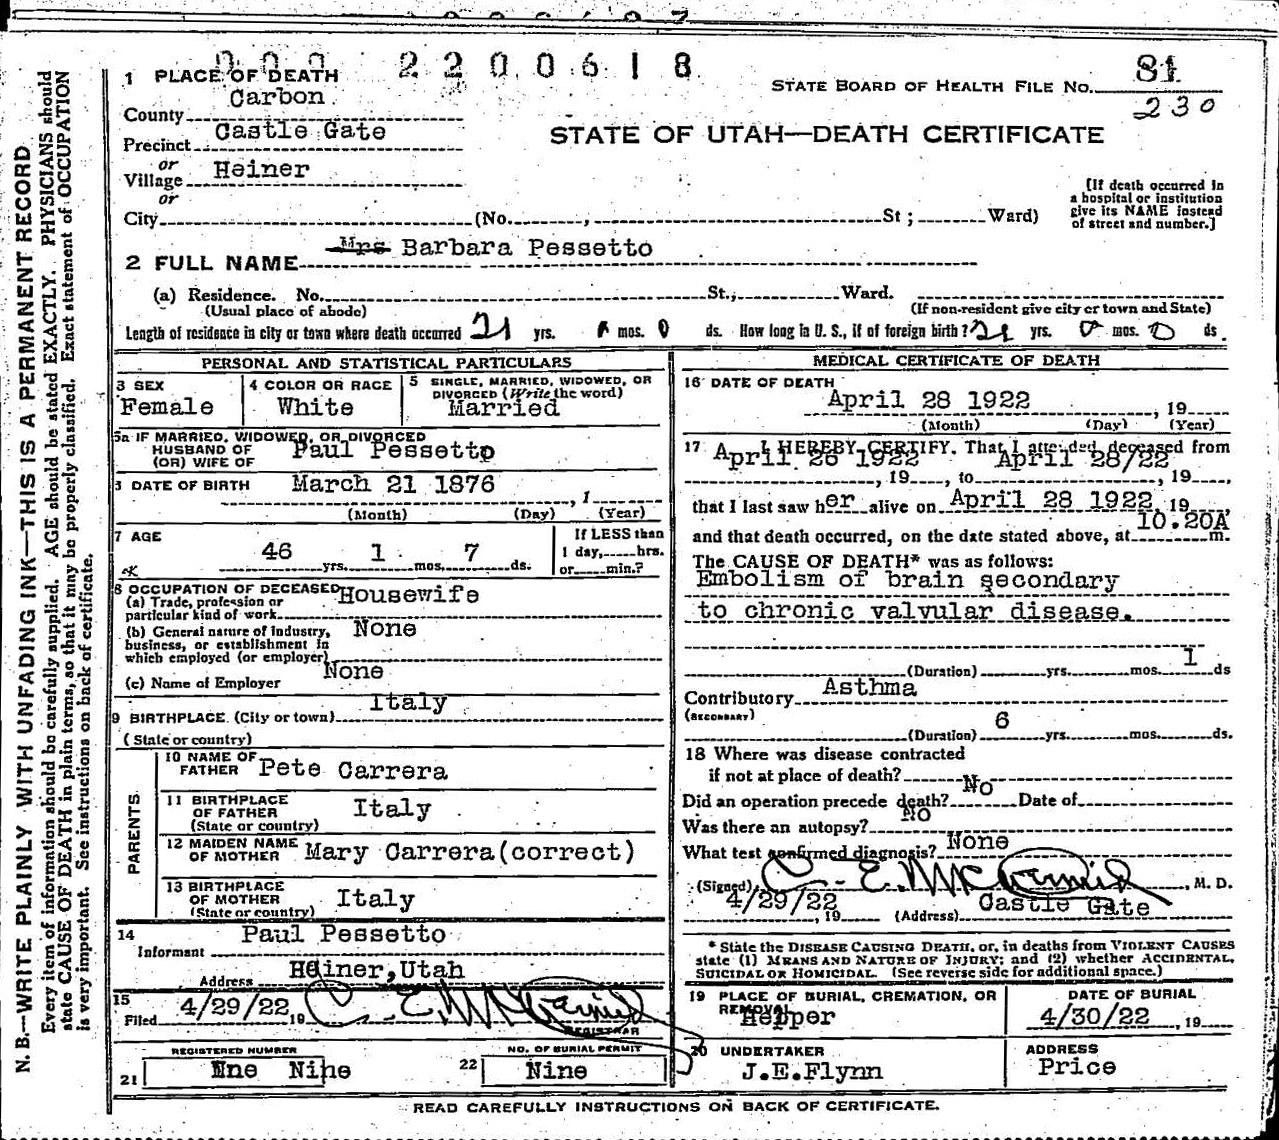 000 2200618
1 PLACE OF DEATH
STATE BOARD OF HEALTH FILE NO. 81
230
County Carbon
Precinct Castle Gate
STATE OF UTAH—DEATH CERTIFICATE
or
Village Heiner
or
City (No. , St ; Ward)
[If death occurred in
a hospital or institution
give its NAME instead
of street and number.]
2 FULL NAME Mrs Barbara Pessetto
(a) Residence. No. St., Ward.
(Usual place of abode) (If non-resident give city or town and State)
Length of residence in city or town where death occurred 21 yrs. mos. 0 ds. How long in U. S., if of foreign birth? 21 yrs. 0 mos. 0 ds.
PERSONAL AND STATISTICAL PARTICULARS
3 SEX
Female
4 COLOR OR RACE
White
5 SINGLE, MARRIED, WIDOWED, OR
DIVORCED (Write the word)
Married
5a IF MARRIED, WIDOWED, OR DIVORCED
HUSBAND OF
(OR) WIFE OF Paul Pessetto
DATE OF BIRTH March 21 1876 , 1
(Month) (Day) (Year)
7 AGE
46 yrs. 1 mos. 7 ds.
If LESS than
1 day, hrs.
or min.?
8 OCCUPATION OF DECEASED
(a) Trade, profession or
particular kind of work Housewife
(b) General nature of industry,
business, or establishment in
which employed (or employer) None
(c) Name of Employer None
9 BIRTHPLACE (City or town) Italy
(State or country)
PARENTS
10 NAME OF
FATHER Pete Carrera
11 BIRTHPLACE
OF FATHER
(State or country) Italy
12 MAIDEN NAME
OF MOTHER Mary Carrera(correct)
13 BIRTHPLACE
OF MOTHER
(State or country) Italy
14
Informant Paul Pessetto
Address Heiner,Utah
15
Filed 4/29/22 19 C. E. McDermid
REGISTRAR
21 REGISTERED NUMBER
Nine
22 NO. OF BURIAL PERMIT
Nine
MEDICAL CERTIFICATE OF DEATH
16 DATE OF DEATH
April 28 1922 , 19
(Month) (Day) (Year)
17 I HEREBY CERTIFY, That I attended deceased from
April 26 1922 , 19 , to April 28/22 , 19 ,
that I last saw her alive on April 28 1922, 19
and that death occurred, on the date stated above, at 10.20A m.
The CAUSE OF DEATH* was as follows:
Embolism of brain secondary
to chronic valvular disease.
(Duration) yrs. mos. 1 ds
Contributory Asthma
(SECONDARY)
(Duration) 6 yrs. mos. ds.
18 Where was disease contracted
if not at place of death?
Did an operation precede death? No Date of
Was there an autopsy? No
What test confirmed diagnosis? None
(Signed) C. E. McDermid , M. D.
4/29/22 , 19 (Address) Castle Gate
* State the DISEASE CAUSING DEATH, or, in deaths from VIOLENT CAUSES
state (1) MEANS AND NATURE OF INJURY; and (2) whether ACCIDENTAL,
SUICIDAL OR HOMICIDAL. (See reverse side for additional space.)
19 PLACE OF BURIAL, CREMATION, OR
REMOVAL
Helper
DATE OF BURIAL
4/30/22 , 19
20 UNDERTAKER
J.E.Flynn
ADDRESS
Price
READ CAREFULLY INSTRUCTIONS ON BACK OF CERTIFICATE.
N. B.—WRITE PLAINLY WITH UNFADING INK—THIS IS A PERMANENT RECORD
Every item of information should be carefully supplied. AGE should be stated EXACTLY. PHYSICIANS should
state CAUSE OF DEATH in plain terms, so that it may be properly classified. Exact statement of OCCUPATION
is very important. See instructions on back of certificate.